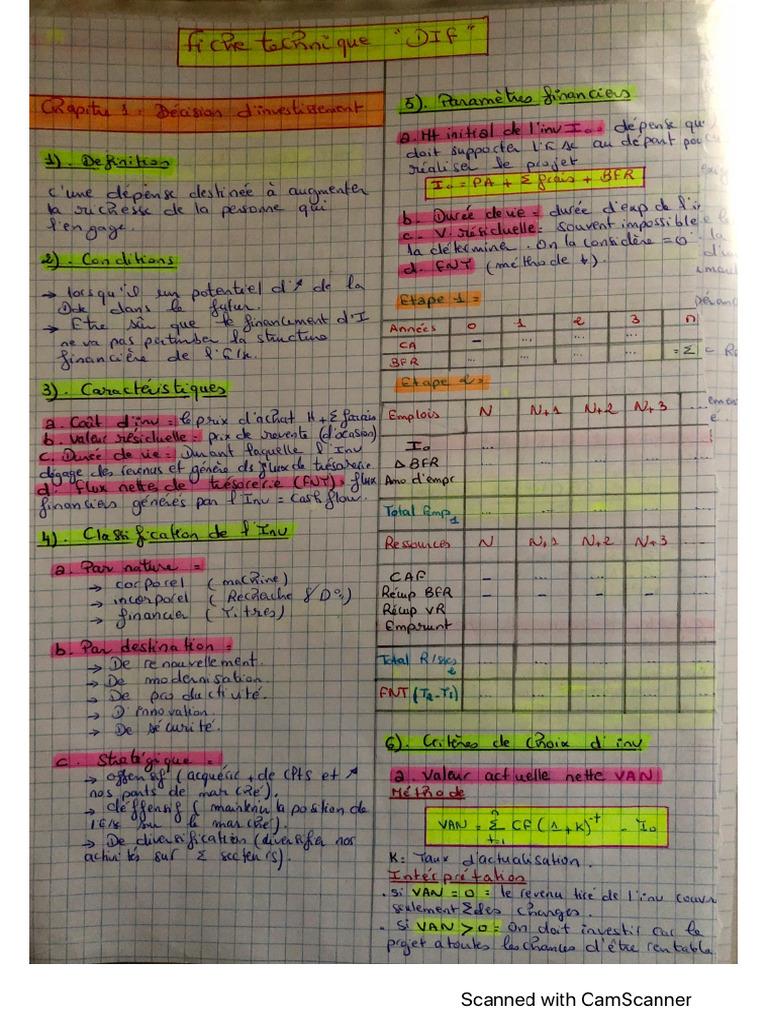 Fiche technique "DIF"
Chapitre 1 : Décision d'investissement
1). Definition
c'une dépense destinée à augmenter
la richesse de la personne qui
l'engage.
2). Conditions
→ lorsqu'il un potentiel d'↗ de la
Dde dans le futur.
→ Etre sûr que le financement d'I
ne va pas perturber la structure
financière de l'E/se.
3). Caractéristiques
a. Coût d'inv = le prix d'achat H + Σ frais
b. Valeur résiduelle = prix de revente (d'ocasion)
c. Durée de vie = Durant laquelle l'Inv
dégage des revenus et génère ds flux de trésorerie
d. Flux nette de trésorerie (FNT) = flux
financiers générés par l'Inv = cash flow.
4). Classification de l'Inv
a. Par nature =
→ corporel (machine)
→ incorporel (Recherche & D%)
→ financier (Titres)
b. Par destination =
→ De renouvellement.
→ De modernisation.
→ De productivité.
→ D'innovation.
→ De sécurité.
c. Stratégique =
→ offensif (acquérir + de CPts et ↗
nos parts de marché).
→ déffensif (maintenir la position de
l'E/se sur le marché).
→ De diversification (diversifier nos
activités sur Σ secteurs).
5). Paramètres financiers
a. Mt initial de l'inv I₀ = dépense que
doit supporter l'E/se au départ pour
réaliser le projet
I₀ = PA + Σ frais + BFR
b. Durée de vie = durée d'exp de l'i
c. V. résiduelle = souvent impossible
la déterminer. On la considère = 0
d. FNT (méthode ↓).
Etape 1 =
Années 0 1 2 3 n
CA - ... ... ...
BFR ... ... ... = Σ
Etape 2 =
Emplois N N+1 N+2 N+3
I₀
Δ BFR
Amo d'empr
Total Emp 1
Ressources N N+1 N+2 N+3
CAF - ... ... ...
Récup BFR - - - -
Récup VR
Emprunt
Total R/sces 2
FNT (T2-T1)
6). Critères de choix d'inv
a. Valeur actuelle nette VAN
Méthode
VAN = Σ CF (1+K)⁻ᵗ - I₀
n
t=1
K = Taux d'actualisation.
Intérprétation
. Si VAN = 0 = le revenu tiré de l'inv couvr
seulement Σ des charges.
. Si VAN > 0 = On doit investir car le
projet a toutes les chances d'être rentable
Scanned with CamScanner